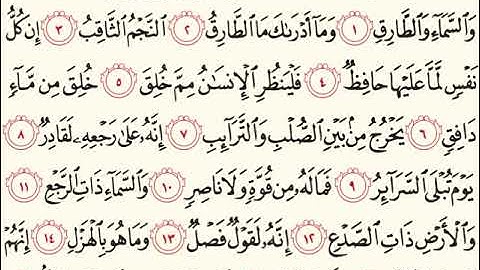 وَٱلسَّمَآءِ وَٱلطَّارِقِ ١ وَمَآ أَدۡرَىٰكَ مَا ٱلطَّارِقُ ٢ ٱلنَّجۡمُ ٱلثَّاقِبُ ٣ إِن كُلُّ
نَفۡسٖ لَّمَّا عَلَيۡهَا حَافِظٞ ٤ فَلۡيَنظُرِ ٱلۡإِنسَٰنُ مِمَّ خُلِقَ ٥ خُلِقَ مِن مَّآءٖ
دَافِقٖ ٦ يَخۡرُجُ مِنۢ بَيۡنِ ٱلصُّلۡبِ وَٱلتَّرَآئِبِ ٧ إِنَّهُۥ عَلَىٰ رَجۡعِهِۦ لَقَادِرٞ ٨
يَوۡمَ تُبۡلَى ٱلسَّرَآئِرُ ٩ فَمَا لَهُۥ مِن قُوَّةٖ وَلَا نَاصِرٖ ١٠ وَٱلسَّمَآءِ ذَاتِ ٱلرَّجۡعِ ١١
وَٱلۡأَرۡضِ ذَاتِ ٱلصَّدۡعِ ١٢ إِنَّهُۥ لَقَوۡلٞ فَصۡلٞ ١٣ وَمَا هُوَ بِٱلۡهَزۡلِ ١٤ إِنَّهُمۡ